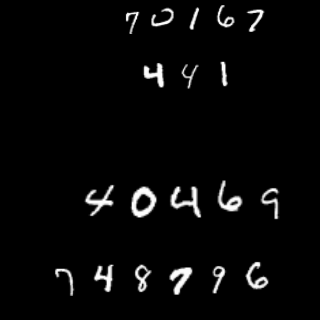 70167
441
40469
748796